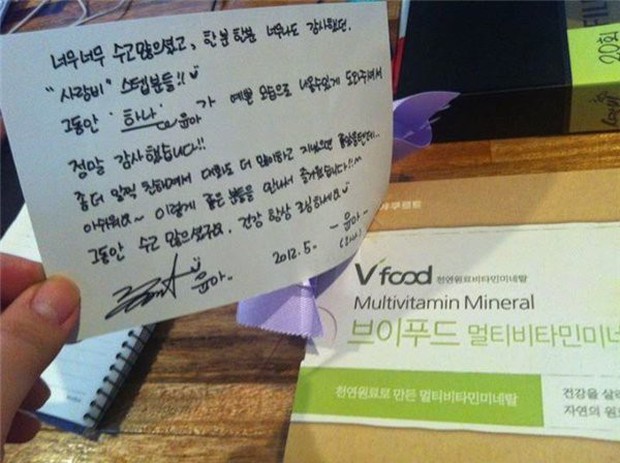 너무너무 수고많으셨고, 한분한분 너무나도 감사했던.
"사랑비" 스텝분들!!
그동안 '하나' 윤아 가 예쁜 모습으로 나올수있게 도와주셔서
정말 감사했습니다!!
좀더 일찍 친해져서 대화도 더 많이하고 지냈으면 좋았을텐데..
아쉬워요~ 이렇게 좋은 분들을 만나서 즐거웠습니다!!^^
그동안 수고 많으셨구요. 건강 항상 조심하세요
2012.5. -윤아-
윤아.
20회
V'food 천연원료비타민미네랄
Multivitamin Mineral
브이푸드 멀티비타민미네
천연원료로 만든 멀티비타민미네랄
건강을 살
자연의 원